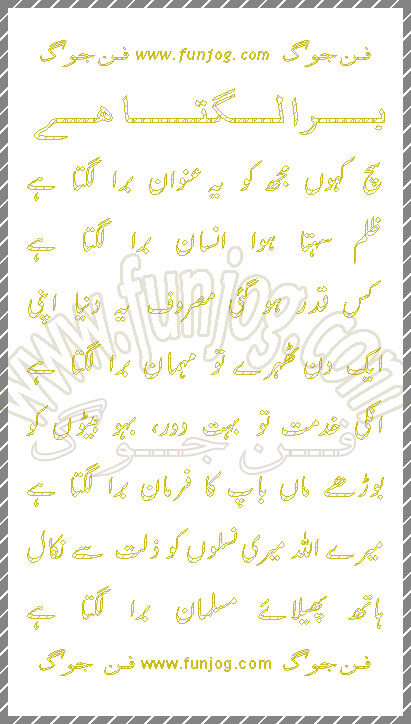 فن جوگ www.funjog.com فن جوگ
برا لگتا ہے
سچ کہوں مجھ کو یہ عنوان برا لگتا ہے
ظلم سہتا ہوا انسان برا لگتا ہے
کس قدر ہو گئی مصروف یہ دنیا اپنی
ایک دن ٹھہرے تو مہمان برا لگتا ہے
انکی خدمت تو بہت دور، بہو بیٹوں کو
بوڑھے ماں باپ کا فرمان برا لگتا ہے
میرے اللہ میری نسلوں کو ذلت سے نکال
ہاتھ پھیلائے مسلمان برا لگتا ہے
فن جوگ www.funjog.com فن جوگ
www.funjog.com
فن جوگ